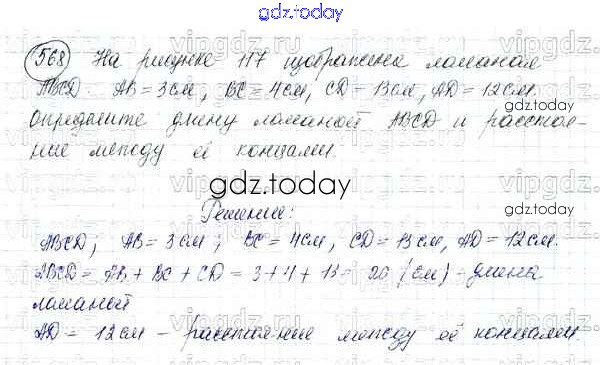 gdz.today
568 На рисунке 117 изображена ломаная
ABCD. AB = 3 см, BC = 4 см, CD = 13 см, AD = 12 см.
gdz.today
Определите длину ломаной ABCD и расстоя-
ние между её концами.
gdz.today
Решение:
ABCD; AB = 3 см; BC = 4 см, CD = 13 см, AD = 12 см.
gdz.today
ABCD = AB + BC + CD = 3 + 4 + 13 = 20 (см) - длина
ломаной
AD = 12 см - расстояние между её концами.